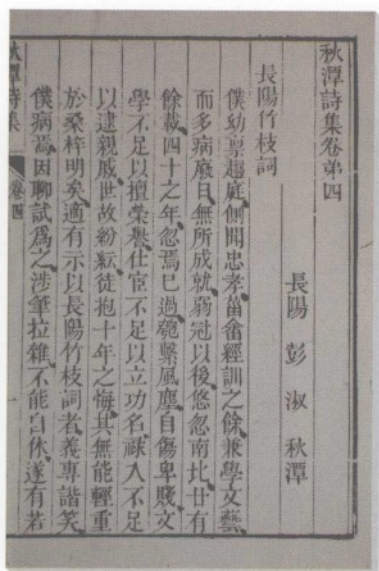 秋潭詩集卷弟四
長陽 彭 淑 秋潭
長陽竹枝詞
僕幼稟趨庭側聞忠孝菑畬經訓之餘兼學文藝
而多病廢日無所成就弱冠以後悠忽南北廿有
餘載四十之年忽焉已過匏繫風塵自傷卑賤文
學不足以擅榮譽仕宦不足以立功名祿入不足
以逮親戚世故紛紜徒抱十年之悔其無能輕重
於桑梓明矣適有示以長陽竹枝詞者義專諧笑
僕病焉因聊試爲之涉筆拉雜不能自休遂有若
秋潭詩集
卷四
一